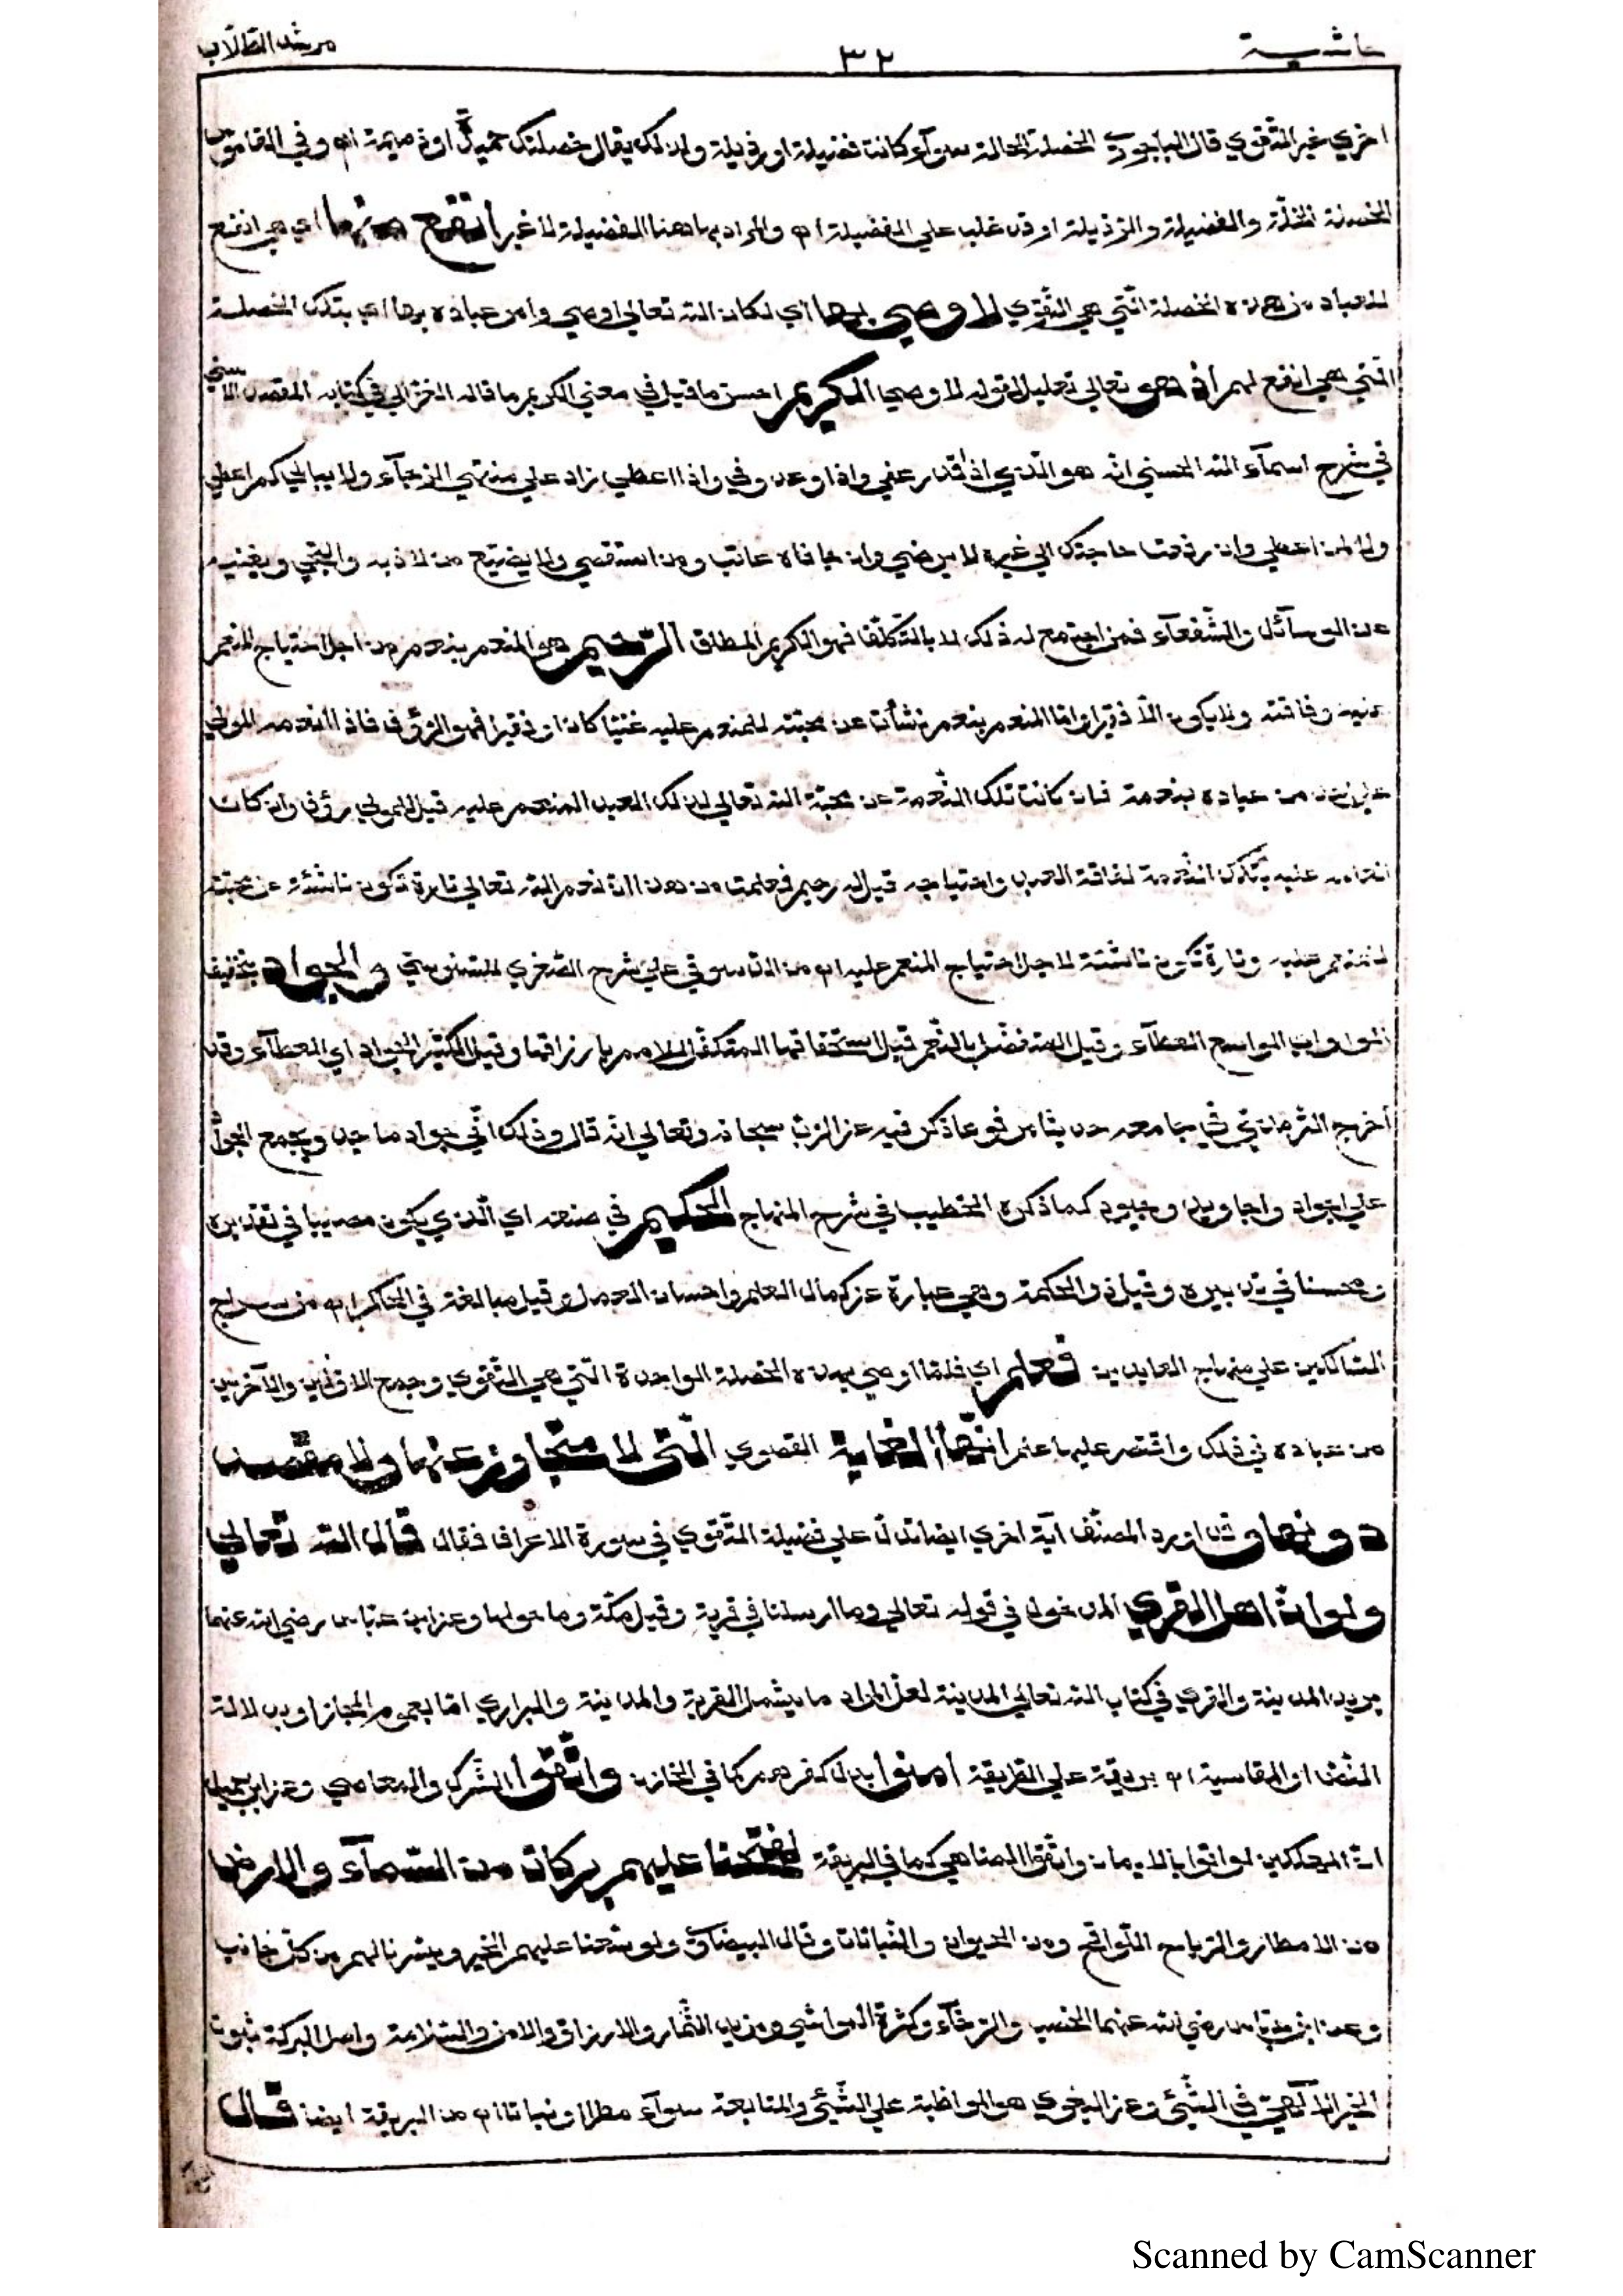 حاشية ٣٢ مرشد الطلاب
اخري غير التقوي قال الباجوري الخصلة الحالة سوآء كانت فضيلة او رذيلة ولذلك يقال خصلتك حميدة او ذميمة اه وفي القاموس
الخصلة الخلّة والفضيلة والرّذيلة او قد غلب علي الفضيلة اه والمراد بها هنا الفضيلة لا غير أنفع منها اي هي انفع
للعباد من هذه الخصلة الّتي هي التّقوي لاوصي بها اي لكان الله تعالي اوصي وامر عباده بها اي بتلك الخصلة
الّتي هي انفع لهم اذ هو تعالي تعليل لقوله لاوصي الكريم احسن ما قيل في معني الكريم ما قاله الغزالي في كتابه المقصد الاسني
في شرح اسمآء الله الحسني انه هو الّذي اذا قدر عفي واذا وعد وفي واذا اعطي زاد علي منتهي الرّجآء ولا يبالي كم اعطي
ولا لمن اعطي وان رفعت حاجتك الي غيره لا يرضي وان جافاه عاتب وما استقصي ولا يضيع من لاذ به والتجي ويغنيه
عن الوسآئل والشّفعآء فمن اجتمع له ذلك لا بالتّكلّف فهو الكريم المطلق الرّحيم هو المنعم بنعم من اجل احتياج المنعم
عليه وفاقته ولا يكون الّا فقيرا وامّا المنعم بنعم نشأت عن محبّته للمنعم عليه غنيّا كان او فقيرا فهو الرّؤف فاذا انعم المولي
علي احد من عباده بنعمة فان كانت تلك النّعمة عن محبّة الله تعالي لذلك العبد المنعم عليه قيل للمولي رؤف وان كان
انعامه عليه بتلك النّعمة لفاقة العبد واحتياجه قيل له رحيم فعلمت من هذا انّ نعم الله تعالي تارة تكون ناشئة عن محبّته
للمنعم عليه وتارة تكون ناشئة لاجل احتياج المنعم عليه اه من الدّسوقي علي شرح الصّغري للسّنوسيّ والجواد بتخفيف
الواو اي الواسع العطآء وقيل المتفضّل بالنّعم قبل استحقاقها المتكفّل للامم بارزاقها وقيل الكثير الجود اي العطآء وقد
أخرج التّرمذيّ في جامعه حديثا مرفوعا ذكر فيه عن الرّبّ سبحانه وتعالي انه قال وذلك انّي جواد ماجد ويجمع الجواد
علي اجواد واجاويد وجود كما ذكره الخطيب في شرح المنهاج الحكيم في صنعه اي الّذي يكون مصيبا في تقديره
ومحسنا في تدبيره وقيل ذو الحكمة وهي عبارة عن كمال العلم واحسان العمل وقيل مبالغة في الحاكم اه من سراج
السّالكين علي منهاج العابدين فعلم اي فلمّا اوصي بهذه الخصلة الواحدة الّتي هي التّقوي وجمع الاوّلين والآخرين
من عباده في ذلك واقتصر عليها علم انّها الغاية القصوي الّتي لا متجاوز عنها ولا مقصد
دونها وقد اورد المصنّف آية اخري ايضا تدلّ علي فضيلة التّقوي في سورة الاعراف فقال قال الله تعالي
ولو انّ اهل القري المدخول في قوله تعالي وما ارسلنا في قرية وقيل مكّة وما حولها وعن ابن عبّاس رضي الله عنهما
يريد المدينة والقري في كتاب الله تعالي المدينة لعلّ المراد ما يشمل القرية والمدينة والبراري امّا بعموم المجاز او بدلالة
النّصّ او المقايسة اه بريقة علي الطريقة امنوا بدل كفرهم كما في الخازن واتّقوا الشّرك والمعاصي وعن ابن جميل
انّ المهلكين لو اتوا بالايمان واتّقوا المناهي كما في البريقة لفتحنا عليهم بركات من السّمآء والارض
من الامطار والرّياح اللّواقح ومن الحيوان والنّباتات وقال البيضاوي ولوسّعنا عليهم الخير ويسّرنا لهم من كلّ جانب
وعن ابن عبّاس رضي الله عنهما الخصب والرّخآء وكثرة المواشي ومزيد الثّمار والارزاق والامن والسّلامة واصل البركة ثبوت
الخير الالٰهيّ في الشّيئ وعن البغوي هو المواظبة علي الشّيئ والمتابعة سوآء مطرا او نباتا اه من البريقة ايضا قال
Scanned by CamScanner